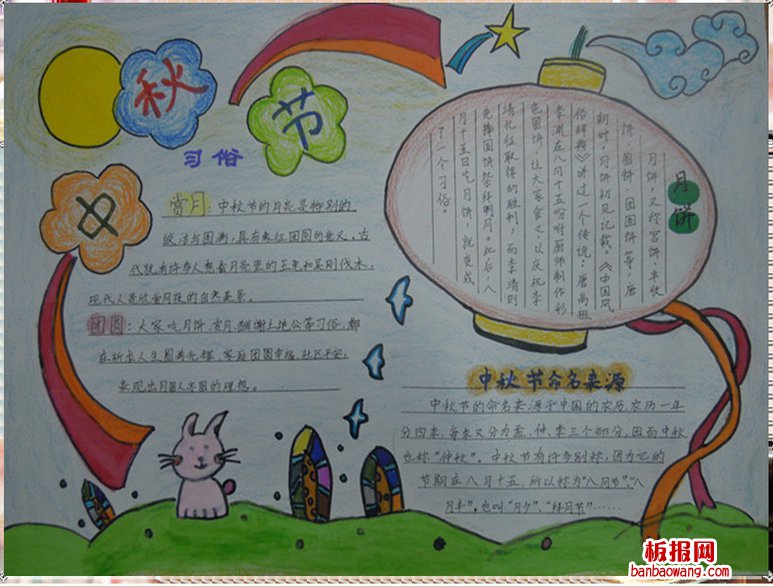 中
秋
节
习俗
赏月：中秋节的月亮是特别的
皎洁与圆满，具有象征团圆的意义，古
代就有许多人想看月亮里的玉兔和吴刚伐木，
现代人是欣赏月夜的自然美景。
团圆：大家吃月饼、赏月、酬谢土地公等习俗，都
在祈求人生圆满光辉、家庭团圆幸福、社区平安，
表现出月圆人亦圆的理想。
月饼
月饼，又称宫饼、丰收
饼、圆饼、团圆饼等，唐
朝时，月饼初见记载。《中国风
俗辞典》讲过一个传说：唐高祖
李渊在八月十五吩咐厨师制作彩
色圆饼，让大家食之以庆祝李
靖北征取得的胜利，而李靖则
先捧圆饼祭拜明月。此后，八
月十五日吃月饼，就变成
了一个习俗。
中秋节命名来源
中秋节的命名来源于中国的农历，农历一年
分四季，每季又分为孟、仲、季三个部分，因而中秋
也称“仲秋”。中秋节有许多别称，因为它的
节期在八月十五，所以称为“八月节”、“八
月半”，也叫“月夕”、“拜月节”……
板报网
banbaowang.com